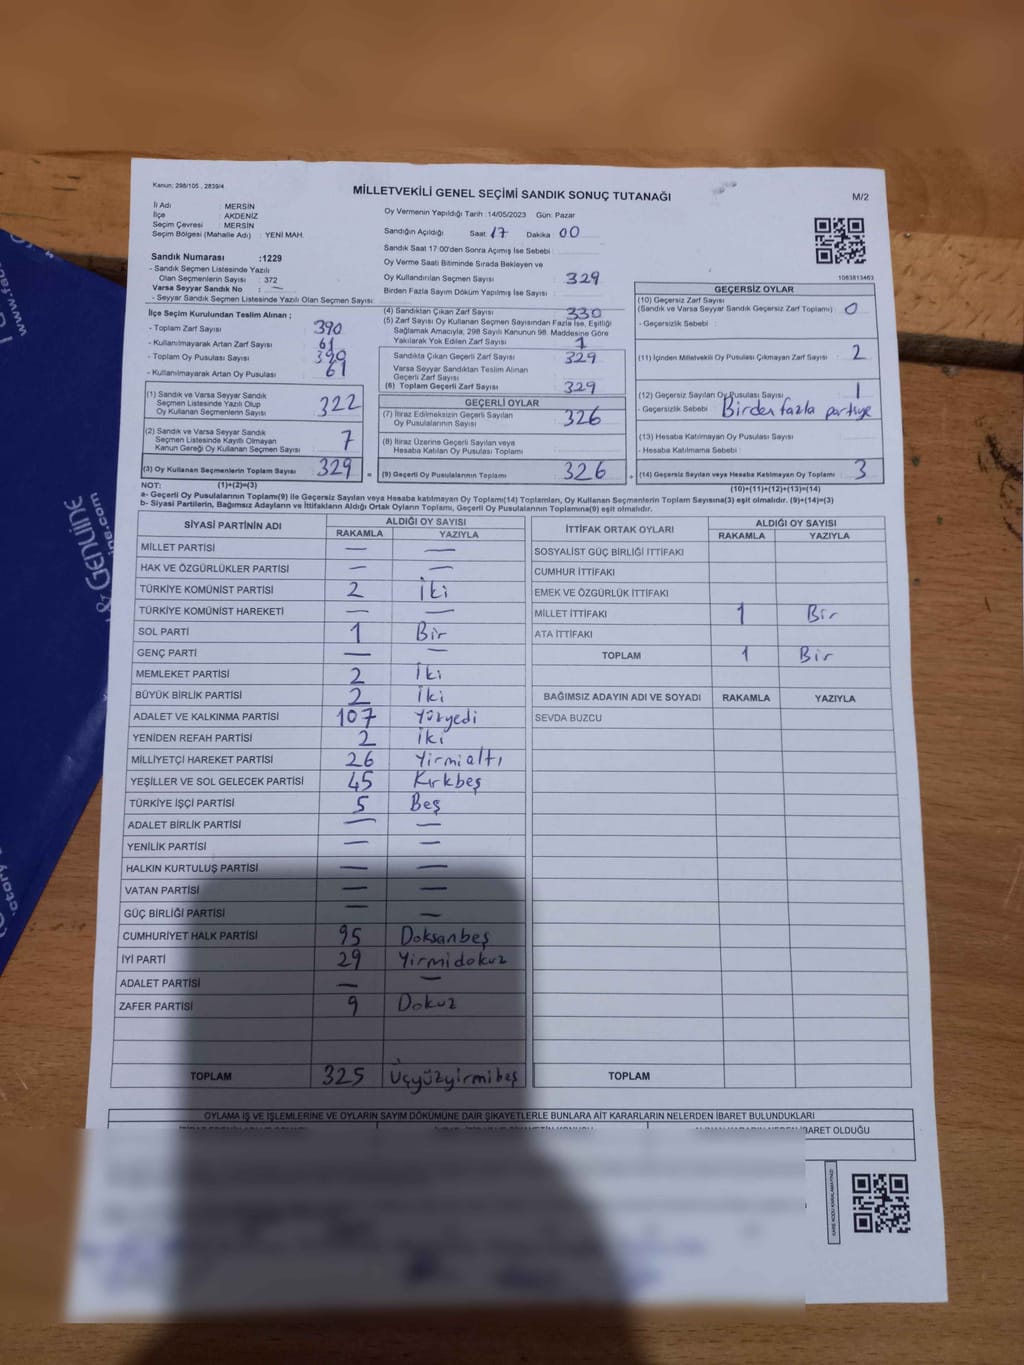 Kanun; 298/105 , 2839/4
MİLLETVEKİLİ GENEL SEÇİMİ SANDIK SONUÇ TUTANAĞI
M/2
İl Adı : MERSİN
İlçe : AKDENİZ
Seçim Çevresi : MERSİN
Seçim Bölgesi (Mahalle Adı) : YENİ MAH.
Sandık Numarası :1229
- Sandık Seçmen Listesinde Yazılı
Olan Seçmenlerin Sayısı : 372
Varsa Seyyar Sandık No : —
- Seyyar Sandık Seçmen Listesinde Yazılı Olan Seçmen Sayısı:
Oy Vermenin Yapıldığı Tarih :14/05/2023 Gün: Pazar
Sandığın Açıldığı Saat: 17 Dakika : 00
Sandık Saat 17:00'den Sonra Açımış İse Sebebi :
Oy Verme Saati Bitiminde Sırada Bekleyen ve
Oy Kullandırılan Seçmen Sayısı : 329
Birden Fazla Sayım Döküm Yapılmış İse Sayısı :
1063813463
İlçe Seçim Kurulundan Teslim Alınan ;
- Toplam Zarf Sayısı : 390
- Kullanılmayarak Artan Zarf Sayısı : 61
- Toplam Oy Pusulası Sayısı : 390
- Kullanılmayarak Artan Oy Pusulası : 61
(1) Sandık ve Varsa Seyyar Sandık
Seçmen Listesinde Yazılı Olup
Oy Kullanan Seçmenlerin Sayısı : 322
(2) Sandık ve Varsa Seyyar Sandık
Seçmen Listesinde Kayıtlı Olmayan
Kanun Gereği Oy Kullanan Seçmen Sayısı : 7
(3) Oy Kullanan Seçmenlerin Toplam Sayısı : 329 =
(4) Sandıktan Çıkan Zarf Sayısı : 330
(5) Zarf Sayısı Oy Kullanan Seçmen Sayısından Fazla İse, Eşitliği
Sağlamak Amacıyla; 298 Sayılı Kanunun 98. Maddesine Göre
Yakılarak Yok Edilen Zarf Sayısı : 1
Sandıkta Çıkan Geçerli Zarf Sayısı : 329
Varsa Seyyar Sandıktan Teslim Alınan
Geçerli Zarf Sayısı
(6) Toplam Geçerli Zarf Sayısı : 329
GEÇERLİ OYLAR
(7) İtiraz Edilmeksizin Geçerli Sayılan
Oy Pusulalarının Sayısı : 326
(8) İtiraz Üzerine Geçerli Sayılan veya
Hesaba Katılan Oy Pusulaları Toplamı :
(9) Geçerli Oy Pusulalarının Toplamı : 326 +
GEÇERSİZ OYLAR
(10) Geçersiz Zarf Sayısı
(Sandık ve Varsa Seyyar Sandık Geçersiz Zarf Toplamı) : 0
- Geçersizlik Sebebi :
(11) İçinden Milletvekili Oy Pusulası Çıkmayan Zarf Sayısı : 2
(12) Geçersiz Sayılan Oy Pusulası Sayısı : 1
- Geçersizlik Sebebi : Birden fazla partiye
(13) Hesaba Katılmayan Oy Pusulası Sayısı :
- Hesaba Katılmama Sebebi :
(14) Geçersiz Sayılan veya Hesaba Katılmayan Oy Toplamı : 3
NOT: (1)+(2)=(3)
(10)+(11)+(12)+(13)=(14)
a- Geçerli Oy Pusulalarının Toplamı(9) ile Geçersiz Sayılan veya Hesaba katılmayan Oy Toplamı(14) Toplamları, Oy Kullanan Seçmenlerin Toplam Sayısına(3) eşit olmalıdır. (9)+(14)=(3)
b- Siyasi Partilerin, Bağımsız Adayların ve İttifakların Aldığı Ortak Oyların Toplamı, Geçerli Oy Pusulalarının Toplamına(9) eşit olmalıdır.
SİYASİ PARTİNİN ADI ALDIĞI OY SAYISI
RAKAMLA YAZIYLA
MİLLET PARTİSİ — —
HAK VE ÖZGÜRLÜKLER PARTİSİ — —
TÜRKİYE KOMÜNİST PARTİSİ 2 İki
TÜRKİYE KOMÜNİST HAREKETİ — —
SOL PARTİ 1 Bir
GENÇ PARTİ — —
MEMLEKET PARTİSİ 2 İki
BÜYÜK BİRLİK PARTİSİ 2 İki
ADALET VE KALKINMA PARTİSİ 107 Yüzyedi
YENİDEN REFAH PARTİSİ 2 İki
MİLLİYETÇİ HAREKET PARTİSİ 26 Yirmialtı
YEŞİLLER VE SOL GELECEK PARTİSİ 45 Kırkbeş
TÜRKİYE İŞÇİ PARTİSİ 5 Beş
ADALET BİRLİK PARTİSİ — —
YENİLİK PARTİSİ — —
HALKIN KURTULUŞ PARTİSİ — —
VATAN PARTİSİ — —
GÜÇ BİRLİĞİ PARTİSİ — —
CUMHURİYET HALK PARTİSİ 95 Doksanbeş
İYİ PARTİ 29 Yirmidokuz
ADALET PARTİSİ — —
ZAFER PARTİSİ 9 Dokuz
TOPLAM 325 Üçyüzyirmibeş
İTTİFAK ORTAK OYLARI ALDIĞI OY SAYISI
RAKAMLA YAZIYLA
SOSYALİST GÜÇ BİRLİĞİ İTTİFAKI
CUMHUR İTTİFAKI
EMEK VE ÖZGÜRLÜK İTTİFAKI
MİLLET İTTİFAKI 1 Bir
ATA İTTİFAKI
TOPLAM 1 Bir
BAĞIMSIZ ADAYIN ADI VE SOYADI RAKAMLA YAZIYLA
SEVDA BUZCU
TOPLAM
OYLAMA İŞ VE İŞLEMLERİNE VE OYLARIN SAYIM DÖKÜMÜNE DAİR ŞİKAYETLERLE BUNLARA AİT KARARLARIN NELERDEN İBARET BULUNDUKLARI
İBARET OLDUĞU
& GENUINE